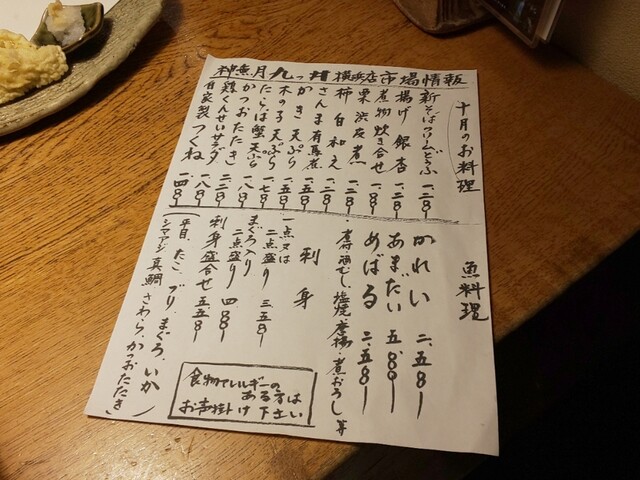 神無月九日 横浜店市場情報
十月のお料理
新そばクリームどうふ 一、二八〇
揚げ銀杏 一、二八〇
煮物炊き合せ 一、八〇
栗渋皮煮 一、二八〇
柿白和え 一、二八〇
さんま有馬煮 一、五八〇
かき天ぷら 一、五八〇
木の子天ぷら 一、七八〇
たらば蟹天ぷら 一、八〇
かつおたたき 二、二八〇
鶏くんせいサラダ 一、八〇
自家製つくね 一、四八〇
魚料理
かれい 二、五八〇
あまだい 五、八〇〇
めばる 二、五八〇
煮付・酒むし・塩焼・唐揚・煮おろし 等
刺身
一点又は
二点盛り 三五八〇
まぐろ入り
二点盛り 四八〇
刺身盛合せ 五五八〇
(平目、たこ、ブリ、まぐろ、いか
シマアジ、真鯛、さわら、かつおたたき)
食物アレルギーの
ある方は
お声掛け下さい